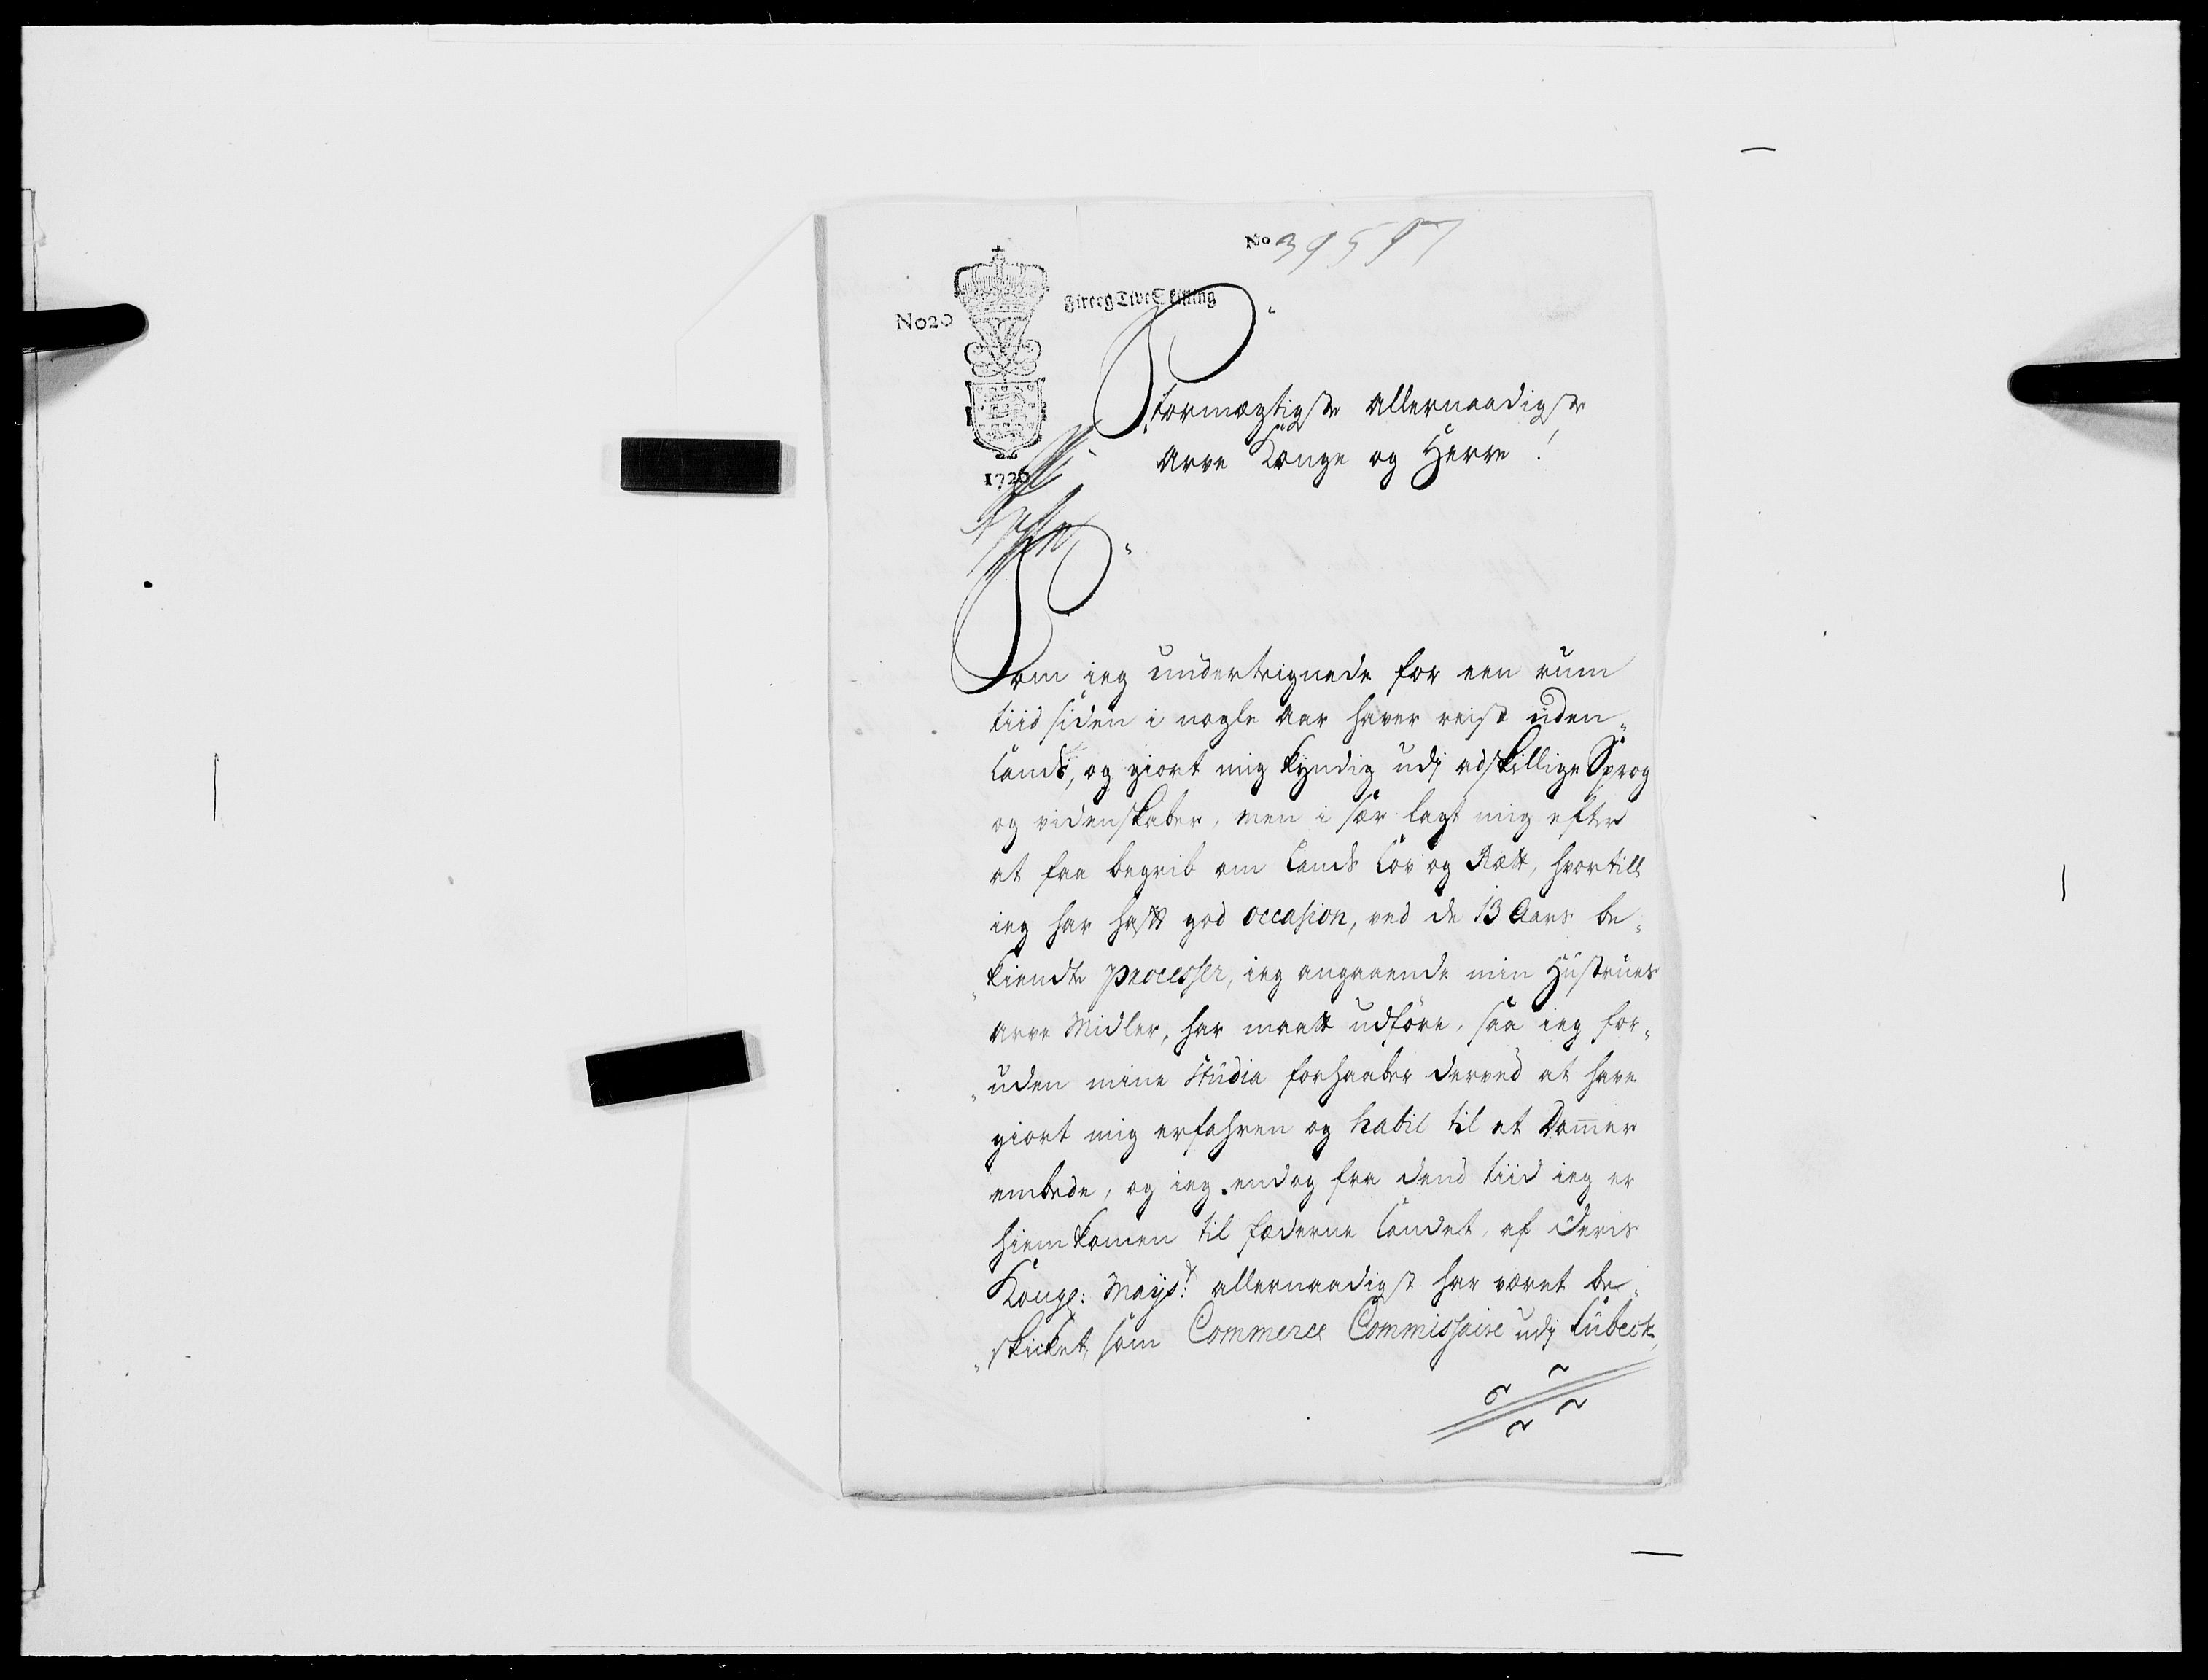 No 39597
No20
Fire og Tive Skilling
1726
Stormægtigste Allernaadigste
Arve Konge og Herre!
Som ieg undertegnede for een rum
tiid siden i nogle Aar haver reist uden„
Lands, og giort mig kyndig udj adskillige Sprog
og videnskaber, men i sær lagt mig efter
at faa begreb om Lands Lov og Rætt, hvortill
ieg har hafft god occasion, ved de 13 Aars be„
„kiendte processer, ieg angaaende min Hustrues
Arve Midler, har maatt udföre, saa ieg for„
„uden mine Studia forhaaber derved at have
giort mig erfahren og habil til et Dommer
embede, og ieg endog fra dend tiid ieg er
hiemkomen til fæderne Landet, af Deris
Kongl: Mayst: allernaadigst har været be„
„skicket som Commerce Commissaire udj Lübeck,